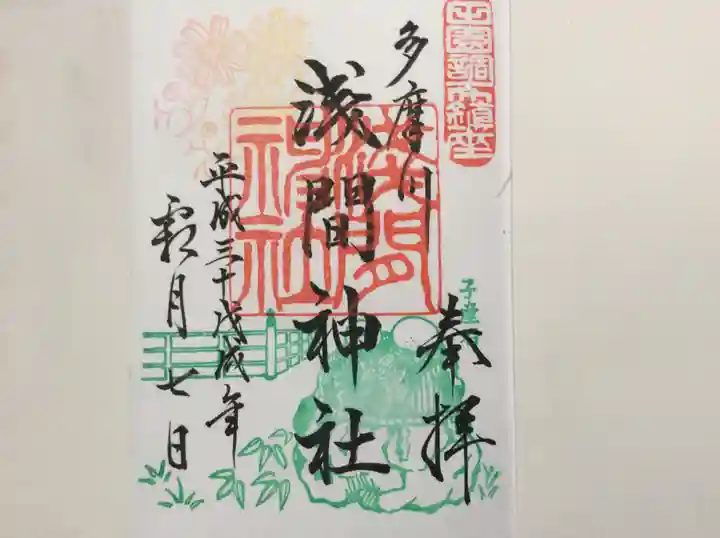 田園調布鎮座
奉拝
多摩川
浅間神社
浅間神社
平成三十戊戌年
霜月七日